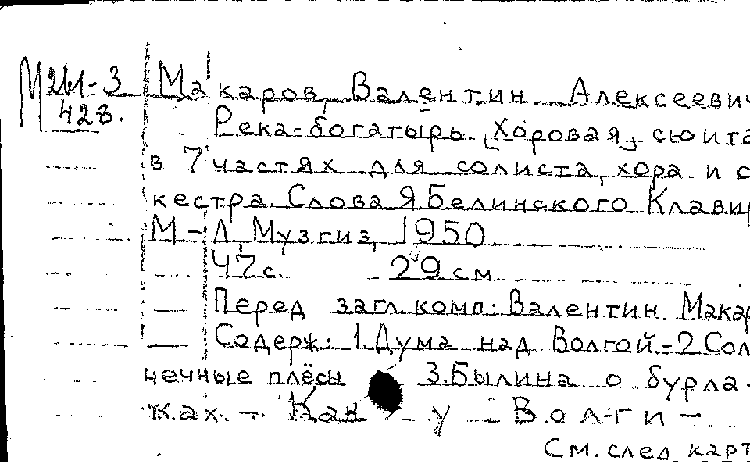 М261-3 Макаров, Валентин Алексеевич
423. Река-богатырь. [Хоровая] сюита
в 7 частях для солиста, хора и о
кестра. Слова Я. Белинского Клавир
М-Л, Музгиз, 1950
47с. 29см
Перед загл. комп: Валентин Макар
Содерж: 1. Дума над Волгой - 2 Сол
нечные плёсы 3. Былина о бурла-
ках. - Как у Волги -
См. след. карт